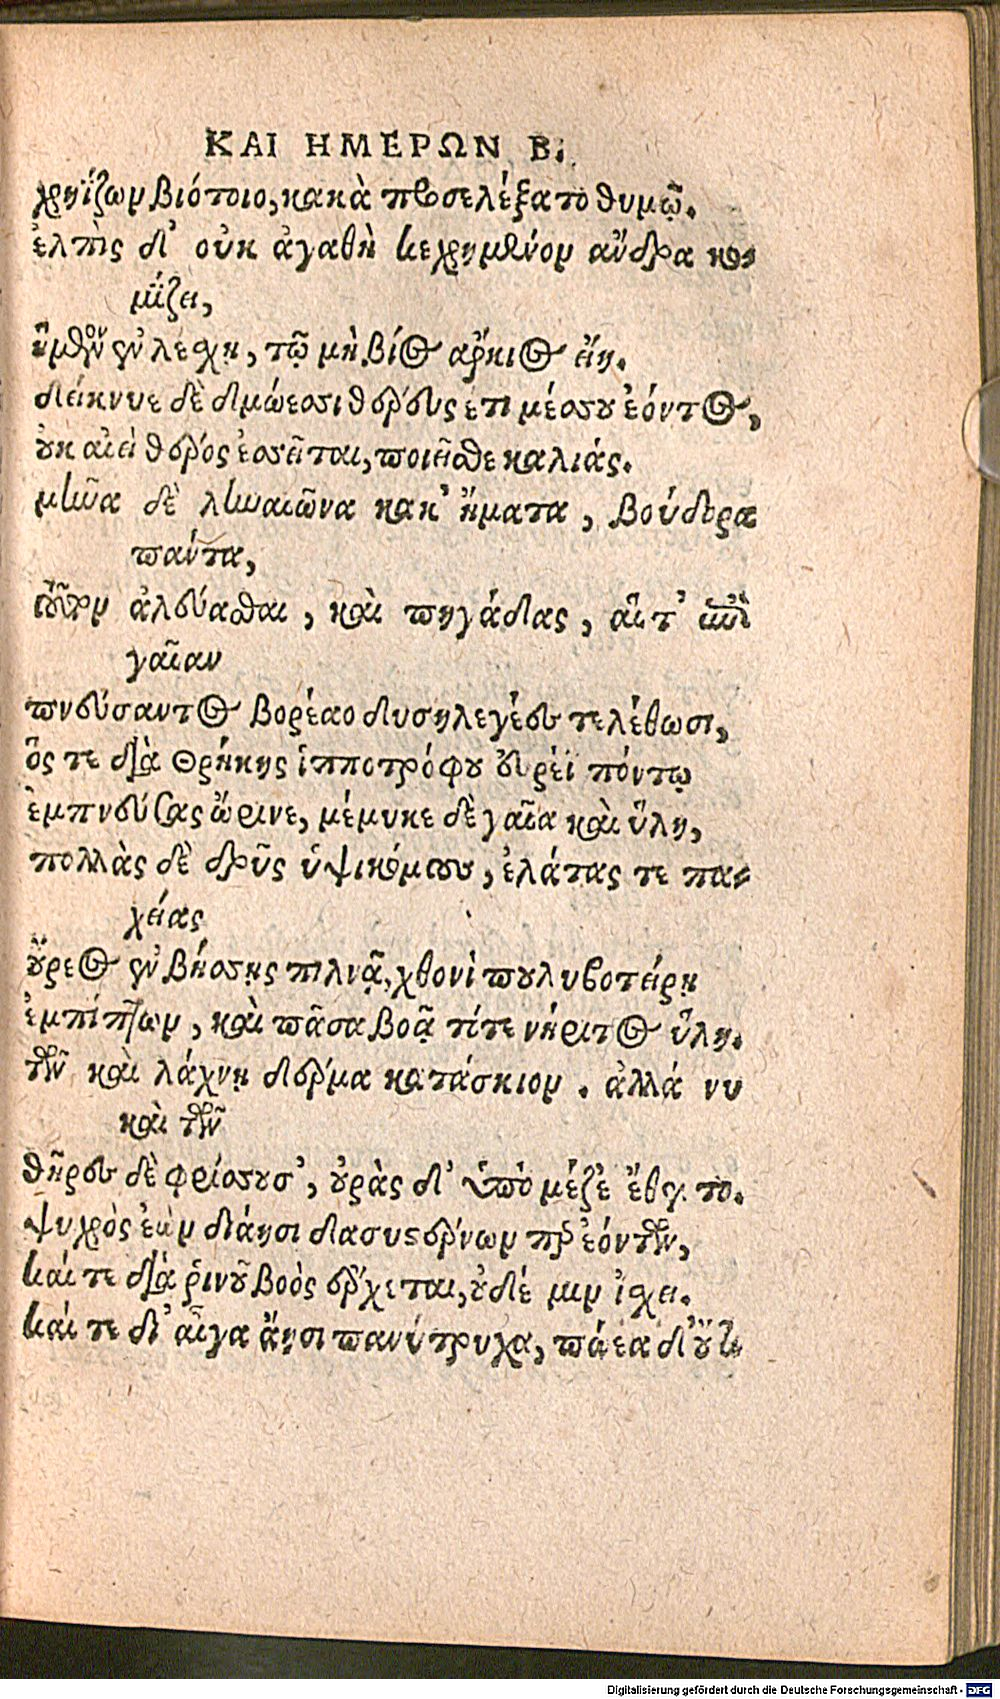 ΚΑΙ ΗΜΕΡΩΝ Β.
χρηΐζων βιότοιο, κακὰ προσελέξατο θυμῷ.
ἐλπὶς δ' οὐκ ἀγαθὴ κεχρημένον ἄνδρα κο-
μΐζει,
ἥμενον ἐν λέσχῃ, τῷ μὴ βίος ἄρκιος εἴη.
δείκνυε δὲ δμώεσσι θέρευς ἔτι μέσσου ἐόντος,
οὐκ αἰεὶ θέρος ἐσσεῖται, ποιεῖσθε καλιάς.
μῆνα δὲ ληναιῶνα κακ' ἤματα, βούδορα
πάντα,
τοῦτον ἀλεύασθαι, καὶ πηγάδας, αἵτ' ἐπὶ
γαῖαν
πνεύσαντος βορέαο δυσηλεγέες τελέθωσι,
ὅς τε διὰ Θρήκης ἱπποτρόφου εὐρέϊ πόντῳ
ἐμπνεύσας ὤρινε, μέμυκε δὲ γαῖα καὶ ὕλη,
πολλὰς δὲ δρῦς ὑψικόμους, ἐλάτας τε πα-
χείας
οὔρεος ἐν βήσσῃς πιλνᾷ, χθονὶ πουλυβοτείρῃ
ἐμπίπτων, καὶ πᾶσα βοᾷ τότε νήριτος ὕλη.
τῶν καὶ λάχνῃ δέρμα κατάσκιον. ἀλλά νυ
καὶ τῶν
θῆρες δὲ φρίσσουσ', οὐρὰς δ' ὑπὸ μέζε' ἔθεντο.
ψυχρὸς ἐὼν διάησι δασυστέρνων περ ἐόντων,
καί τε διὰ ῥινοῦ βοὸς ἔρχεται, οὐδέ μιν ἴσχει.
καί τε δι' αἶγα ἄησι τανύτριχα, πώεα δ' οὔτι